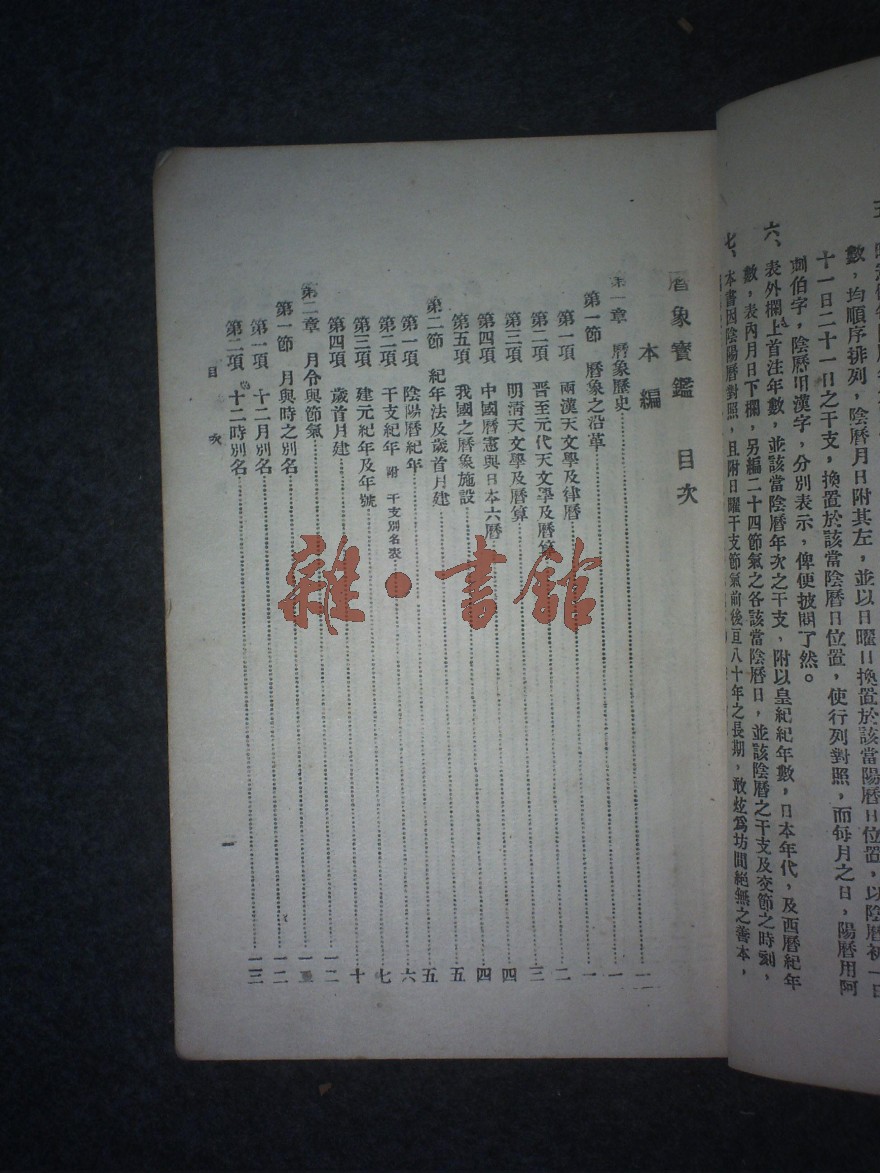 數，均順序排列，陰曆月日附其左，並以日曜日換置於該當陽曆日位置，以陰曆初一日
十一日二十一日之干支，換置於該當陰曆日位置，使行列對照，而每月之日，陽曆用阿
剌伯字，陰曆用漢字，分別表示，俾便披閱了然。
六、表外欄上首注年數，並該當陰曆年次之干支，附以皇紀紀年數，日本年代，及西曆紀年
數，表內月日下欄，另編二十四節氣之各該當陰曆日，並該陰曆之干支及交節之時刻，
七、本書因陰陽曆對照，且附日曜干支節氣前後亘八十年之長期，敢炫爲坊間絕無之善本，
曆象寶鑑　目次
本編
第一章　曆象歷史……一
第一節　曆象之沿革……一
第一項　兩漢天文學及律曆……二
第二項　晉至元代天文學及曆算……三
第三項　明淸天文學及曆算……四
第四項　中國曆憲與日本六曆……四
第五項　我國之曆象施設……五
第二節　紀年法及歲首月建……五
第一項　陰陽曆紀年……六
第二項　干支紀年　附　干支別名表……七
第三項　建元紀年及年號……十
第四項　歲首月建……一二
第二章　月令與節氣……
第一節　月與時之別名……一二
第一項　十二月別名……一二
第二項　十二時別名……一三
目　次
一
雜·書館